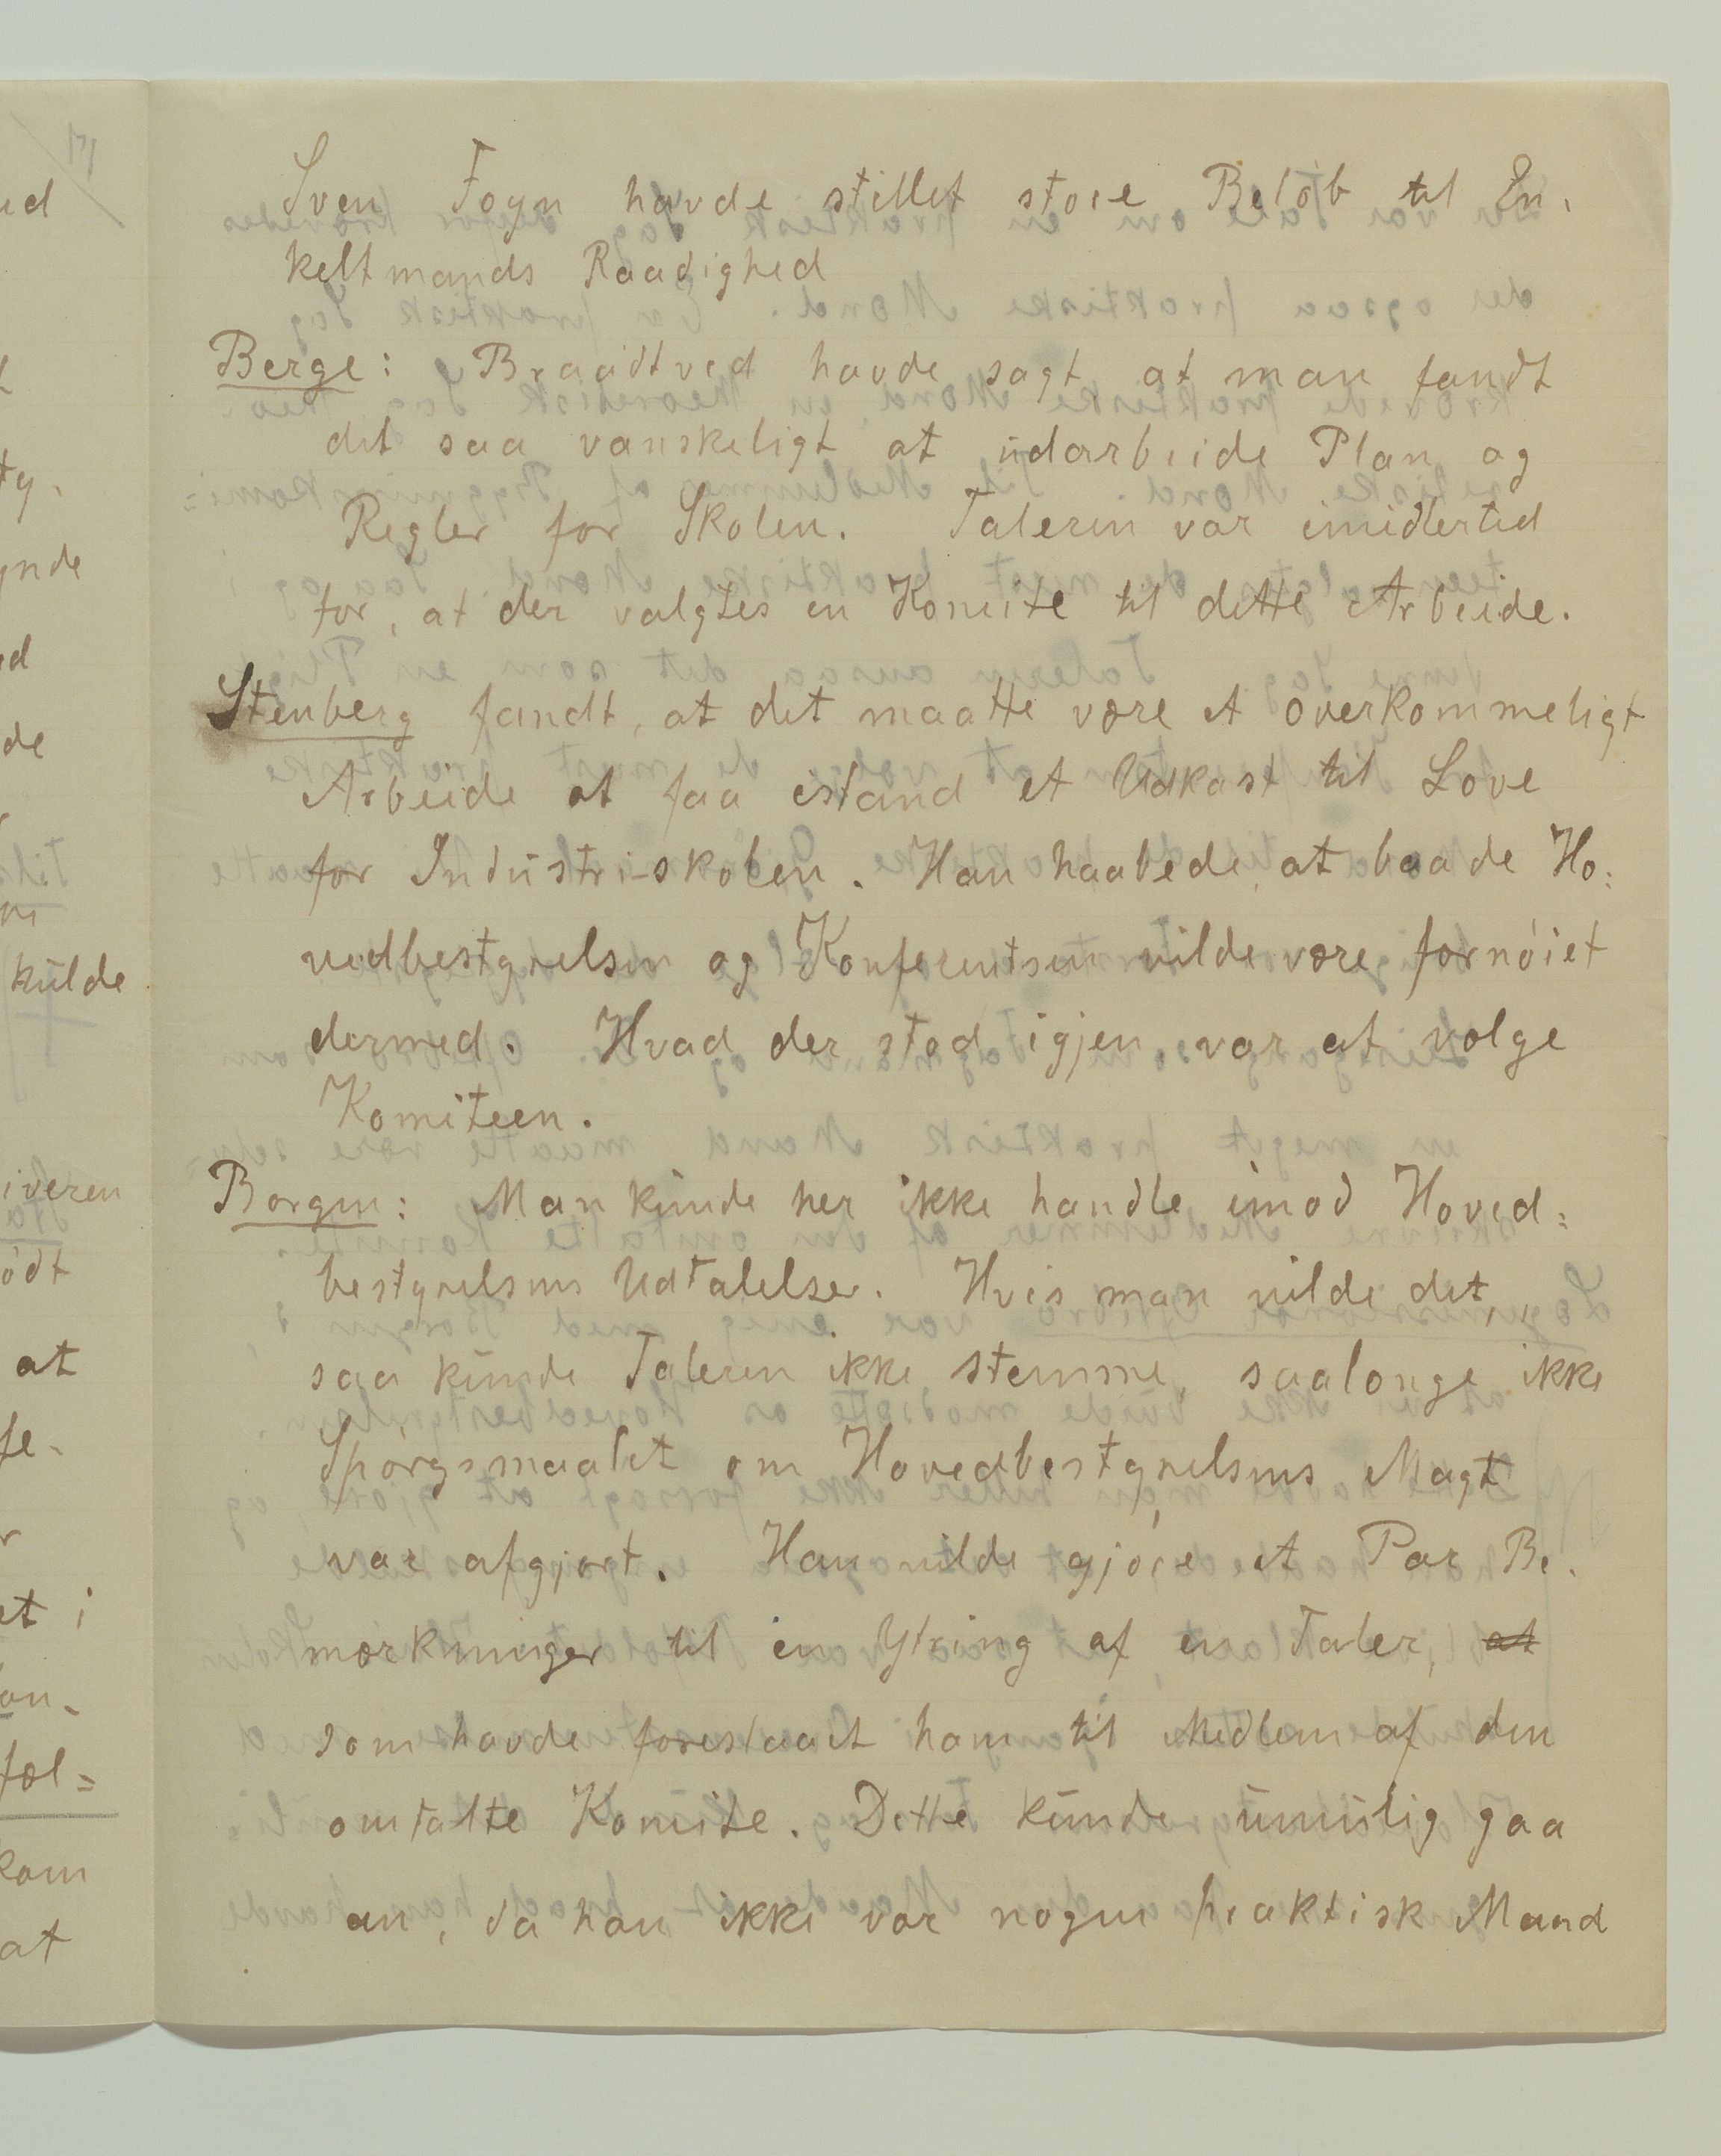 Sven Foyn havde stillet store Beløb til En-
keltmands Raadighed
Berge: Braadtved havde sagt at man fandt
det saa vanskeligt at udarbeide Plan og
Regler for Skolen. Taleren var imidlertid
for, at der valgtes en Komite til dette Arbeide.
Stenberg fandt, at det maatte være et overkommeligt
Arbeide at faa istand et Udkast til Love
for Industriskolen. Han haabede, at baade Ho=
vedbestyrelsen og Konferentsen vilde være fornøiet
dermed. Hvad der stod igjen, var at vælge
Komiteen.
Borgen: Man kunde her ikke handle imod Hoved=
bestyrelsens Udtalelser. Hvis man vilde det,
saa kunde Taleren ikke stemme, saalænge ikke
Spørgsmaalet om Hovedbestyrelsens Magt
var afgjort. Han vilde gjøre et Par Be-
mærkninger til en Ytring af en Taler, at
som havde foreslaaet ham til Medlem af den
omtalte Komite. Dette kunde umulig gaa
an, da han ikke var nogen praktisk Mand